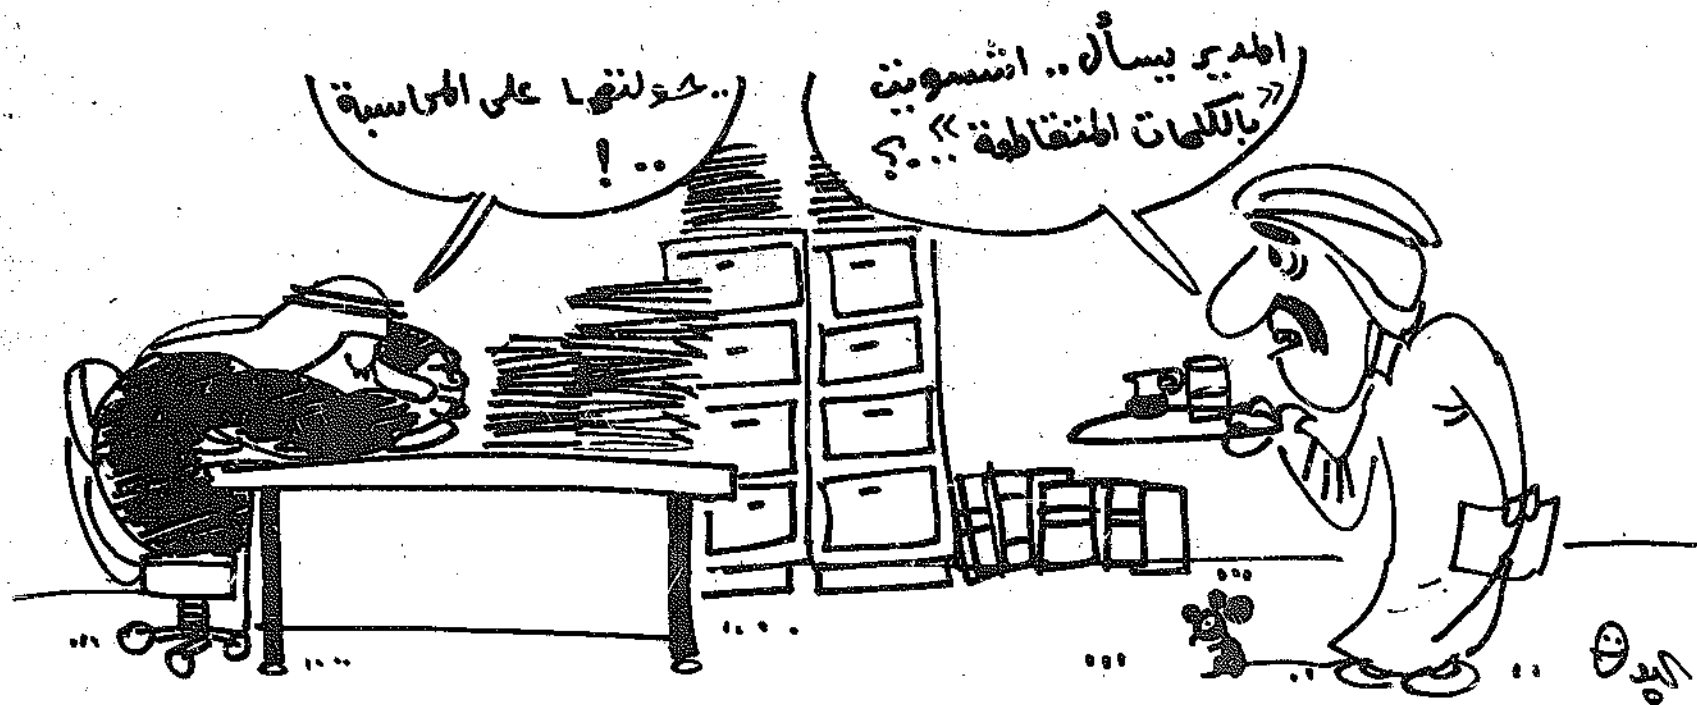 المدير يسأل .. اشسويت
« بالكلمات المتقاطعة » ...؟
.. حولتها على المحاسبة
.. !